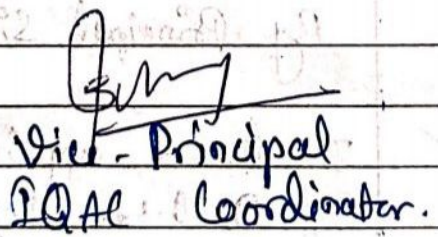 Vice - Principal
IQAC Coordinator.